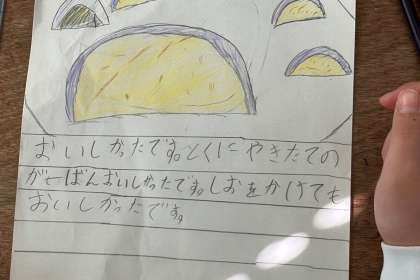 おいしかったです。とくにやきたての
がいちばんおいしかったです。しおをかけても
おいしかったです。